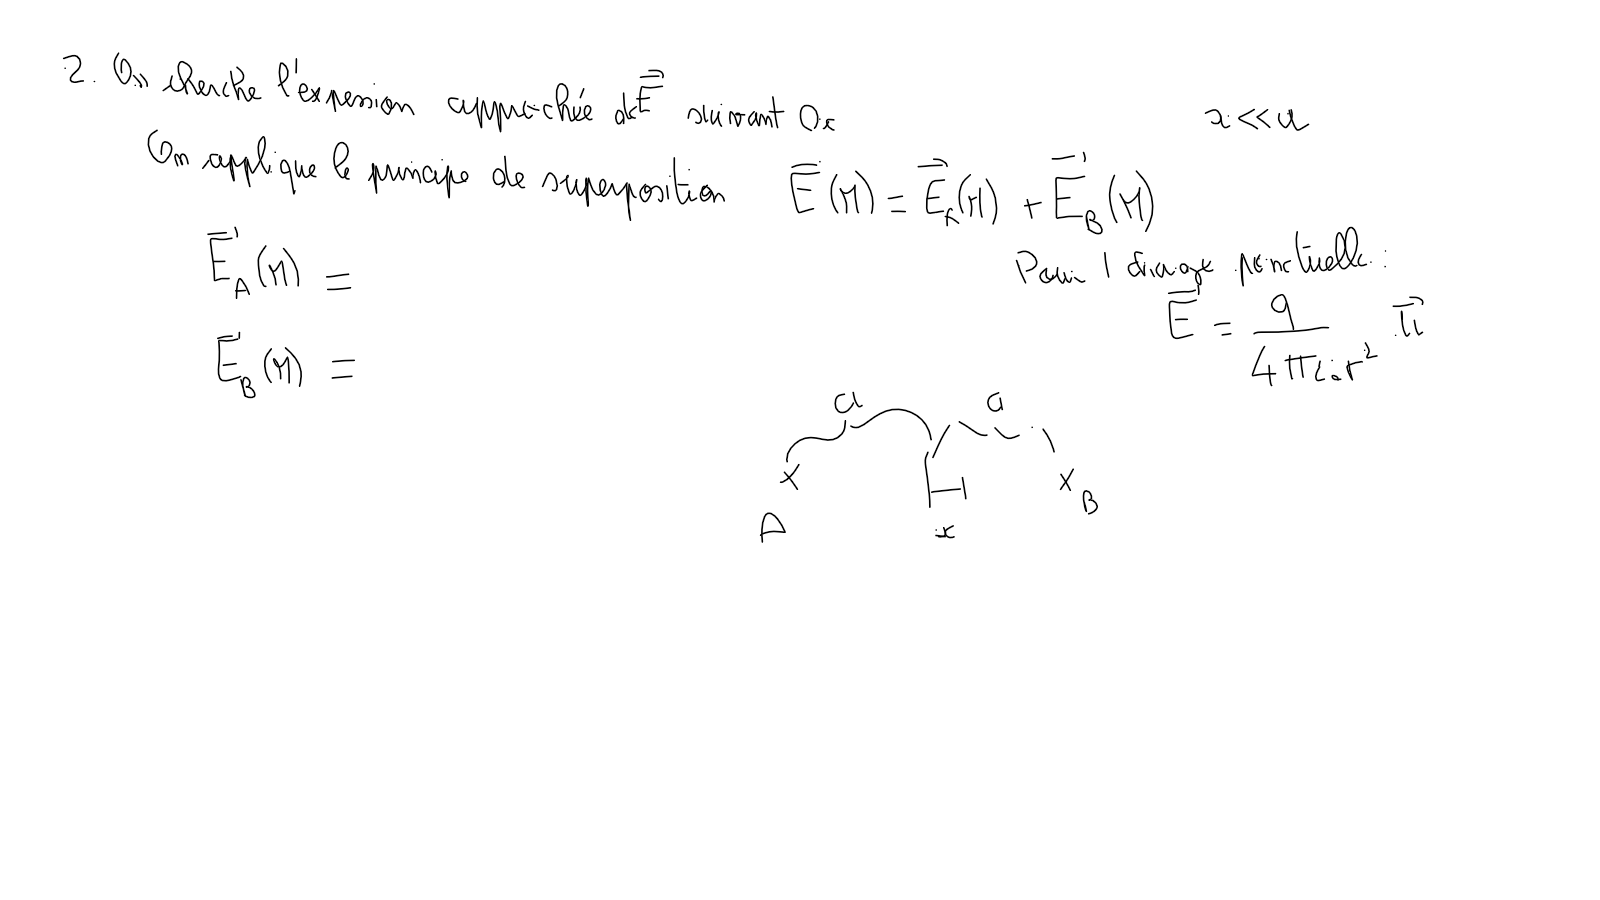 2. On cherche l'expression approchée de E⃗ suivant Ox
x << a
On applique le principe de superposition E⃗(M) = E⃗_A(M) + E⃗_B(M)
E⃗_A(M) =
Pour 1 charge ponctuelle :
E⃗ = q / 4πε₀r² u⃗
E⃗_B(M) =
a a
A x B